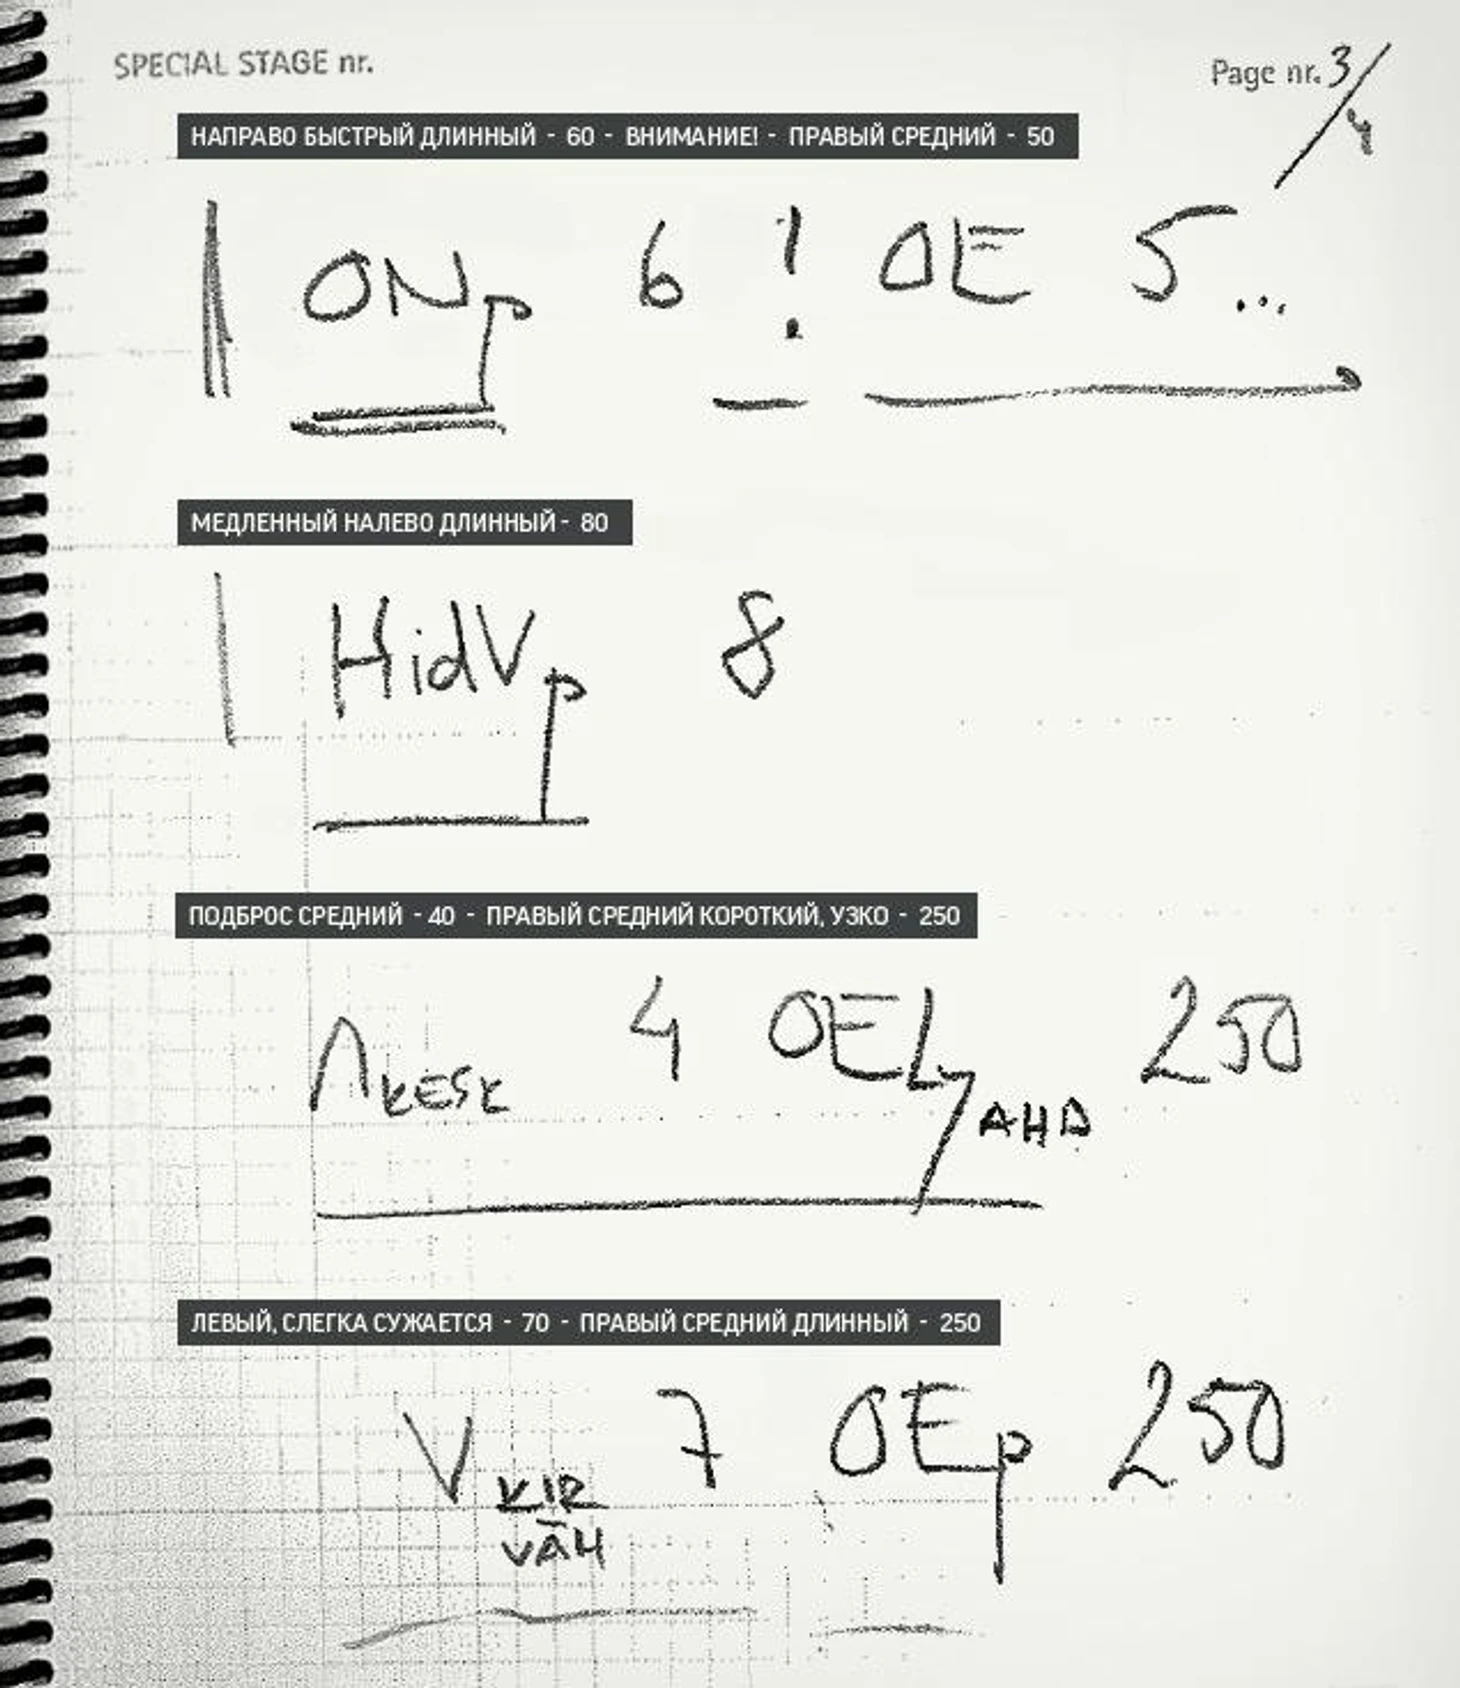 SPECIAL STAGE nr.
Page nr. 3/
НАПРАВО БЫСТРЫЙ ДЛИННЫЙ - 60 - ВНИМАНИЕ! - ПРАВЫЙ СРЕДНИЙ - 50
ONp 6 ! OE 5...
МЕДЛЕННЫЙ НАЛЕВО ДЛИННЫЙ - 80
HidVp 8
ПОДБРОС СРЕДНИЙ - 40 - ПРАВЫЙ СРЕДНИЙ КОРОТКИЙ, УЗКО - 250
KESK 4 OEL AHD 250
ЛЕВЫЙ, СЛЕГКА СУЖАЕТСЯ - 70 - ПРАВЫЙ СРЕДНИЙ ДЛИННЫЙ - 250
V KIR 7 OEp 250
VÄH